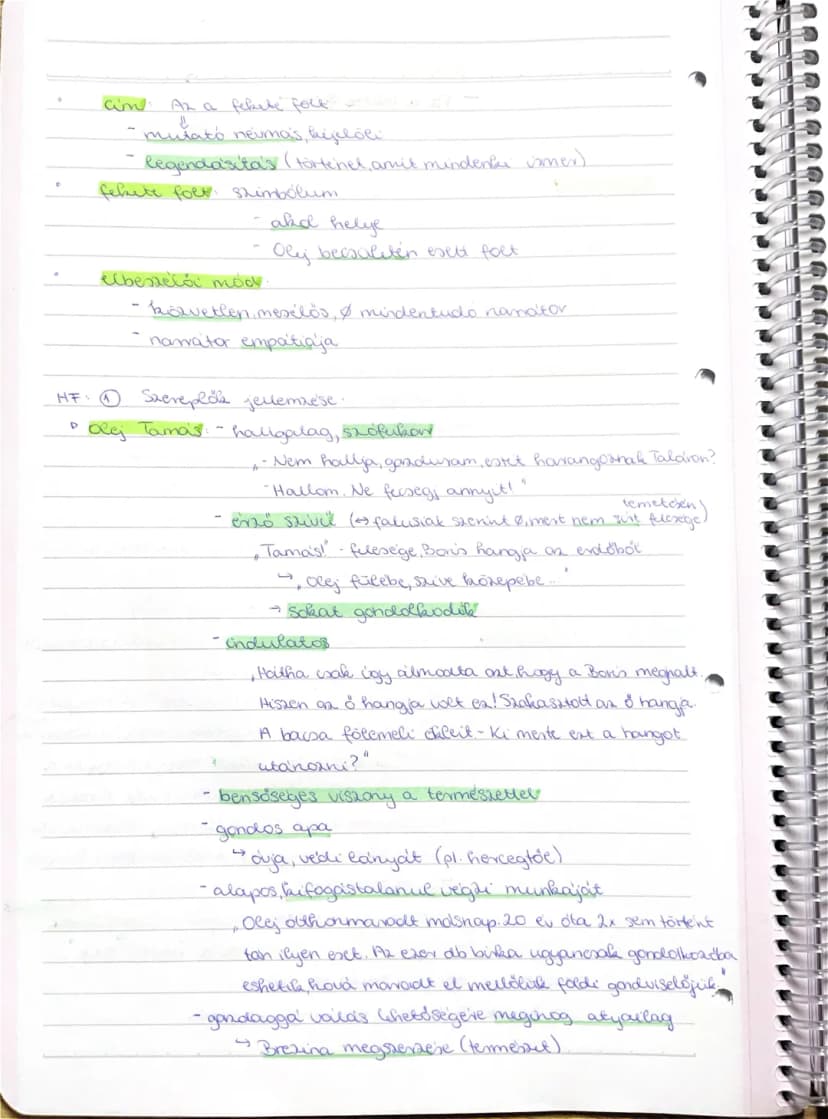 cím: Az a fekete folt
⇓
- mutató névmás, kijelöli
- legendásítás (történet, amit mindenki ismer)
fekete folt: szimbólum
- akol helye
- Olej becsületén esett folt
elbeszélői mód:
- közvetlen, mesélős, Ø mindentudó narrátor
- narrátor empátiája
HF: ① Szereplők jellemzése:
Olej Tamás: - hallgatag, szófukar
„- Nem hallja, gazduram, estét harangoznak Taláron?
- Hallom. Ne fecsegj annyit!"
temetésén)
- érző szívű (↔ falusiak szerint Ø, mert nem sírt felesége
„Tamás!" - felesége, Boris hangja az erdőből
↳ „Olej fülébe, szíve közepébe..."
→ sokat gondolkodik
- indulatos
„Hátha csak úgy álmodta azt, hogy a Boris meghalt.
Hiszen az ő hangja volt ez! Szakasztott az ő hangja.
A bacsa fölemeli ökleit - Ki merte ezt a hangot
utánozni?"
- bensőséges viszony a természettel
- gondos apa
↳ óvja, védi lányát (pl. hercegtől)
- alapos, kifogástalanul végzi munkáját
„Olej otthonmaradt másnap. 20 év óta 2x sem történt
tán ilyen eset. Az ezer db birka ugyancsak gondolkozóba
eshetik, hová maradt el mellőlük földi gondviselőjük."
- gazdaggá válás lehetőségére meginog atyailag
↳ Brezina megszerzése (természet)